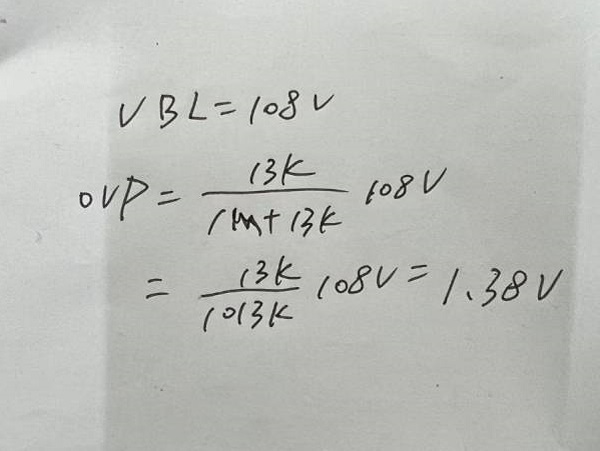 VBL=108V
OVP = 13K / 1M+13K 108V
= 13K / 1013K 108V = 1.38V